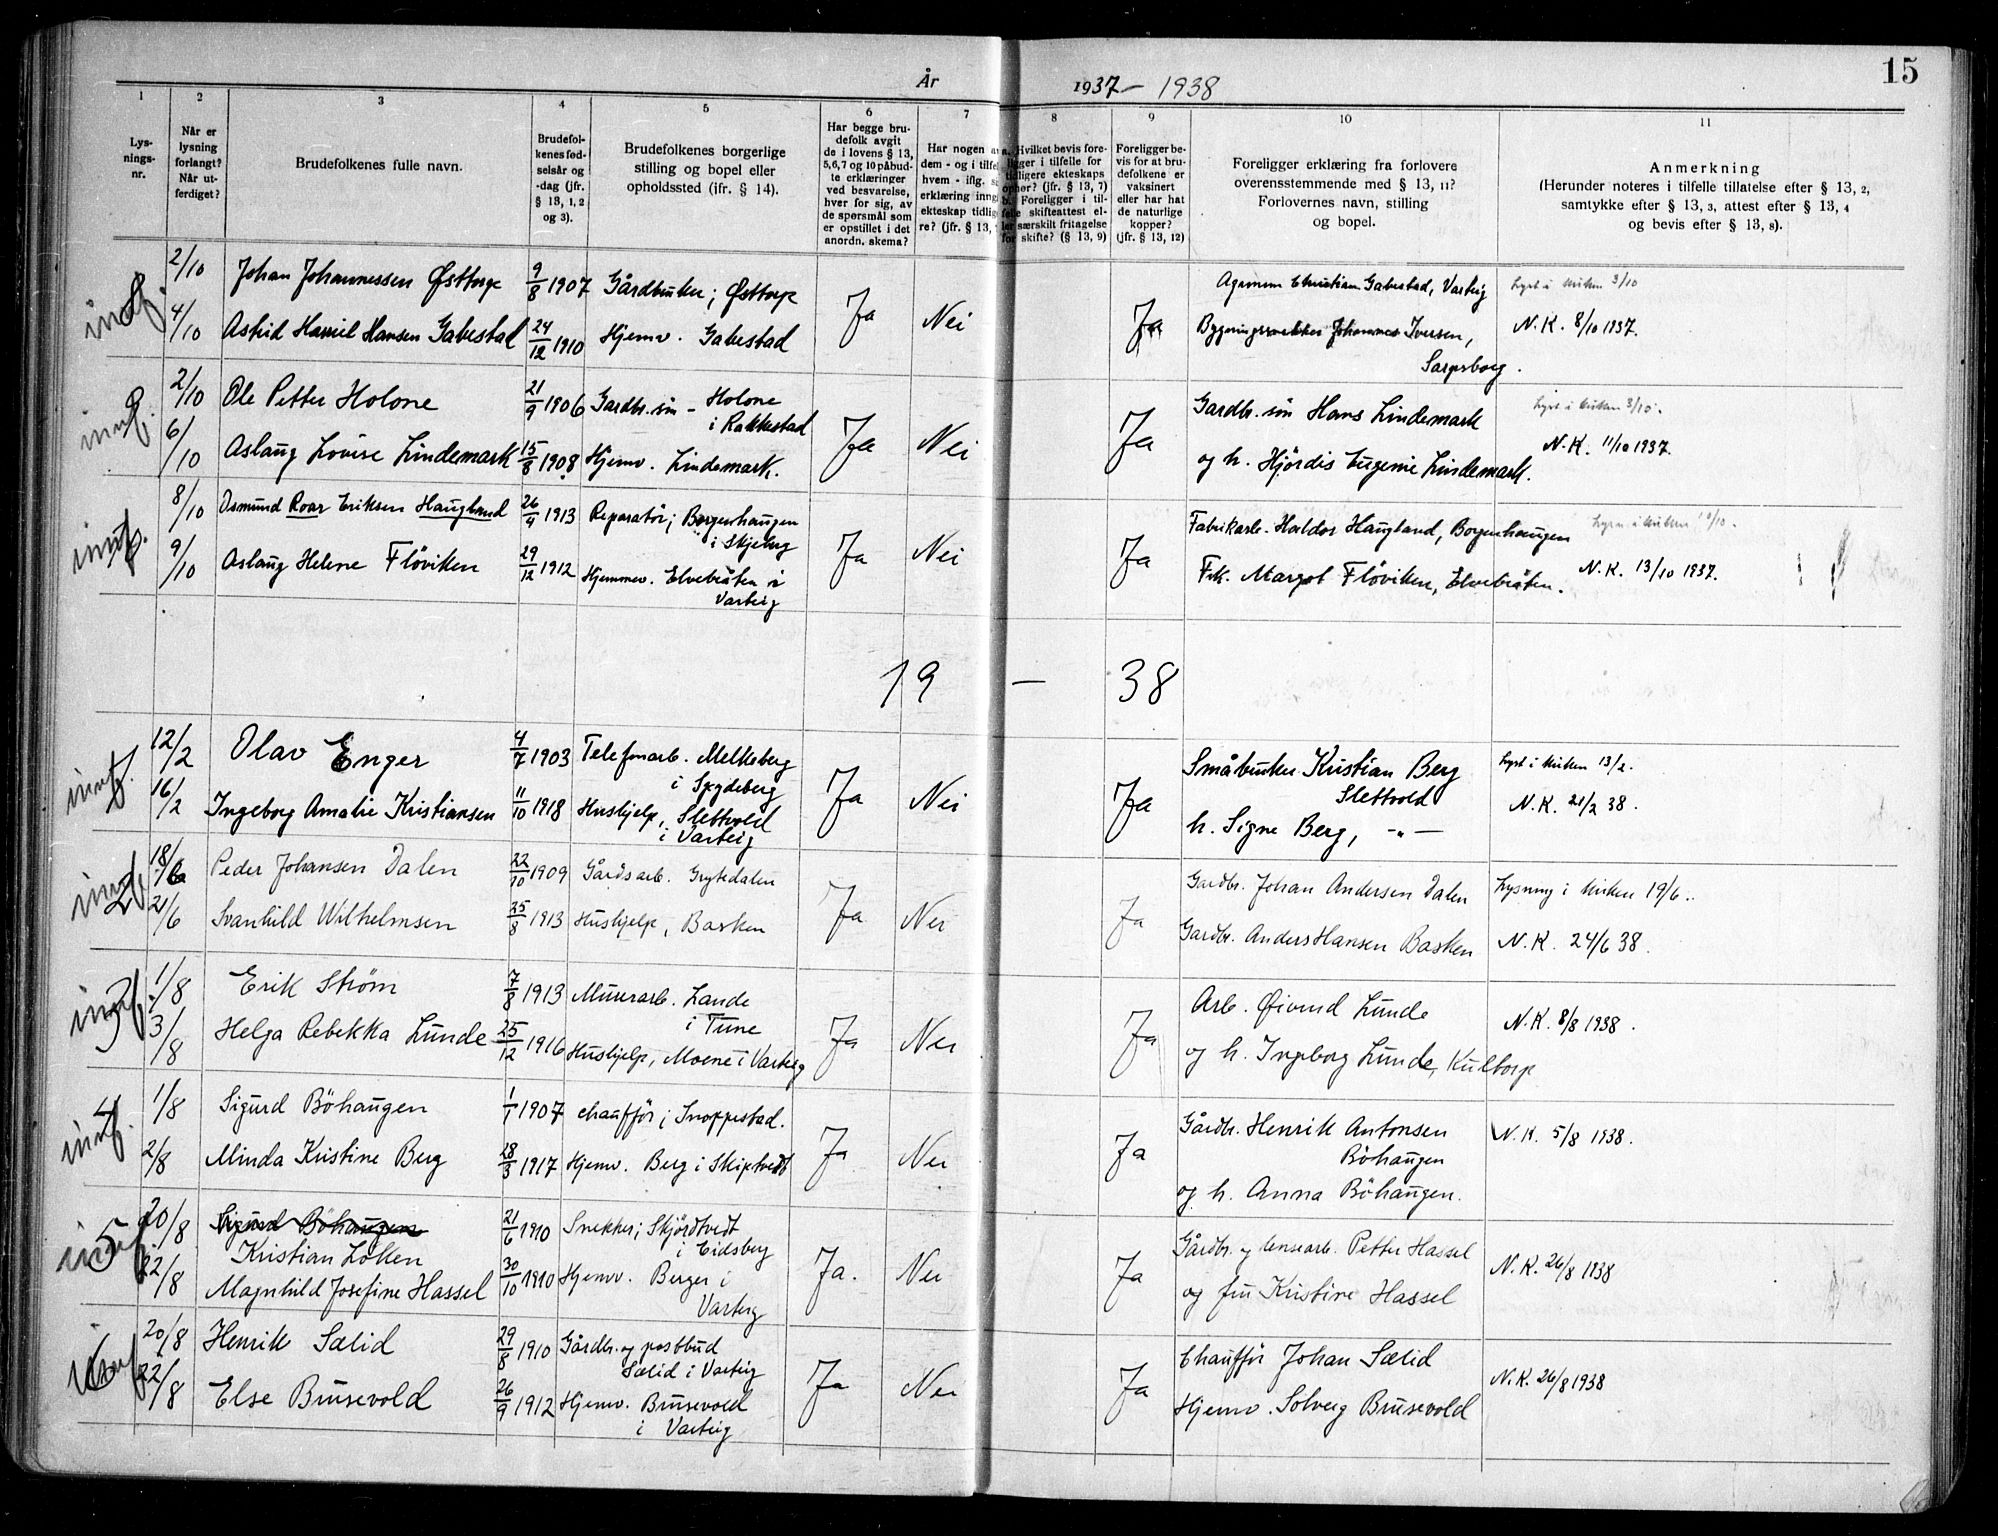 15
År 1937 – 1938
1 2 3 4 5 6 7 8 9 10 11
Lys-
nings-
nr.
Når er
lysning
forlangt?
Når ut-
ferdiget?
Brudefolkenes fulle navn.
Brudefol-
kenes fød-
selsår og
-dag (jfr.
§ 13, 1, 2
og 3).
Brudefolkenes borgerlige
stilling og bopel eller
opholdssted (ifr. § 14).
Har begge bru-
defolk avgit
de i lovens § 13,
5,6,7 og 10 påbud-
te erklæringer
ved besvarelse,
hver for sig, av
de spørsmål som
er opstillet i det
anordn. skema?
Har nogen a
dem - og i tilfel
hvem - iflg. si
erklæring inng
ekteskap tidlig
re? (jfr. § 13,
a. Hvilket bevis fore-
ligger i tilfelle for
tidligere ekteskaps
ophør? (jfr. § 13, 7)
b. Foreligger i til-
felle skifteattest el-
ler særskilt fritagelse
for skifte? (§ 13, 9)
Foreligger be-
vis for at bru-
defolkene er
vaksinert
eller har hat
de naturlige
kopper?
(jfr. § 13, 12)
Foreligger erklæring fra forlovere
overensstemmende med § 13, 11?
Forlovernes navn, stilling
og bopel.
Anmerkning
(Herunder noteres i tilfelle tillatelse efter § 13, 2,
samtykke efter § 13, 3, attest efter § 13, 4
og bevis efter § 13, 8).
2/10 Johan Johannessen Østtorp 9/8 1907 Gårdbruker; Østtorp Ja Nei Ja Christian Gabestad, Varteig Lyst i kirken 3/10
4/10 Astrid Hansen Gabestad 24/12 1910 Hjemv. Gabestad Johannes Iversen, N.K. 8/10 1937.
Sarpsborg.
2/10 Ole Petter Holone 21/9 1906 Gardbr. søn – Holone
i Rakkestad Ja Nei Ja Gardbr. søn Hans Lindemark Lyst i kirken 3/10.
6/10 Aslaug Lovise Lindemark 15/8 1908 Hjemv. Lindemark. og h. Hjördis Eugenie Lindemark. N.K. 11/10 1937.
8/10 Osmund Roar Eriksen Haugland 26/4 1913 Reparatør; Borgenhaugen
i Skjeberg Ja Nei Ja Fabrikarb. Haldor Haugland, Borgenhaugen
9/10 Aslaug Helene Flöviken 29/12 1912 Hjemmev. Elvebråten i
Varteig Frk. Margot Flöviken, Elvebråten. N.K. 13/10 1937.
19 – 38
12/2 Olav Enger 4/7 1903 Telefonarb. Melkeberg
i Spydeberg Ja Nei Ja Småbruker Kristian Berg
Slettvold Lyst i kirken 13/2.
16/2 Ingeborg Amalie Kristiansen 11/10 1918 Hushjelp, Slettvold
i Varteig h. Signe Berg, –"– N.K. 21/2 38.
2 18/6 Peder Johansen Dalen 22/10 1909 Gårdsarb. Grytedalen Ja Nei Ja Gardbr. Johan Andersen Dalen Lysning i kirken 19/6.
21/6 Svanhild Wilhelmsen 25/8 1913 Hushjelp, Basken Gardbr. Anders Hansen Basken N.K. 24/6 38.
3 1/8 Erik Strøm 7/8 1913 Murerarb. Lande
i Tune Ja Nei Ja Arb. Øivind Lunde
3/8 Helga Rebekka Lunde 25/12 1916 Hushjelp, Moene i Varteig og h. Ingeborg Lunde, Kultorp N.K. 8/8 1938.
4 1/8 Sigurd Böhaugen 1/1 1907 chauffør; Snoppestad. Ja Nei Ja Gårdbr. Henrik Antonsen
Böhaugen N.K. 5/8 1938.
2/8 Minda Kristine Berg 28/3 1917 Hjemv. Berg i Skiptvedt og h. Anna Böhaugen.
5 20/8 Sigurd Böhaugen
Kristian Loken 21/6 1910 Snekker; Skjördtvedt
i Eidsberg Ja. Nei Ja Gårdbr. og Petter Hassel
22/8 Magnhild Josefine Hassel 30/10 1910 Hjemv. Berger i
Varteig og fru Kristine Hassel N.K. 26/8 1938
6 20/8 Henrik Sælid 29/8 1910 Gårdbr. og postbud
Sælid i Varteig Ja Nei Ja Chauffør Johan Sælid
22/8 Else Brusevold 26/9 1912 Hjemv. Brusevold
i Varteig Hjemv. Solveig Brusevold N.K. 26/8 1938